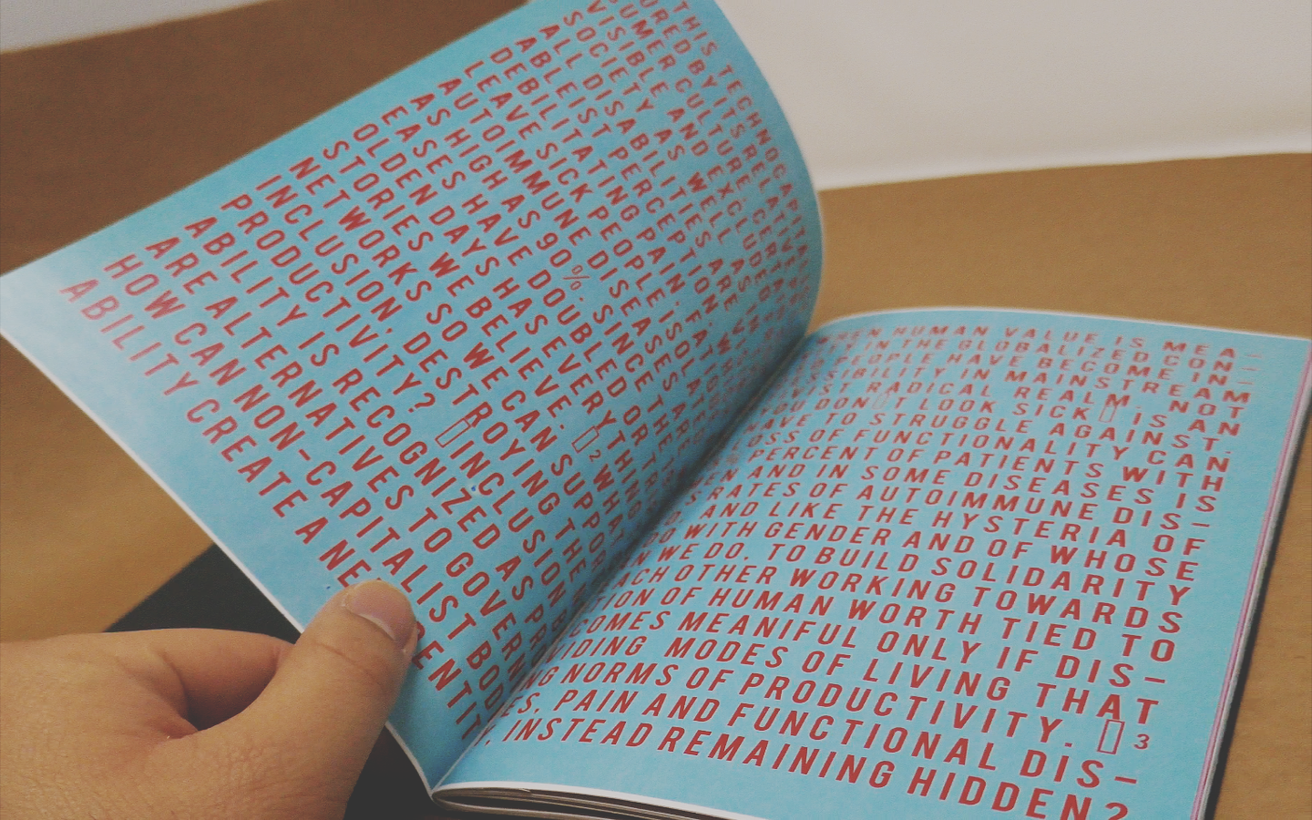 THIS TECHNOCAPTIVE
URED BY ITS RELATIVE
UMER CULTURE, CERTAIN
VISIBLE AND EXCLUDED
SOCIETY AS WELL AS
ALL DISABILITIES ARE
ABLEIST PERCEPTION
DEBILITATING PAIN, FATIGUE
LEAVE SICK PEOPLE ISOLATED
AUTOIMMUNE DISEASES ARE
AS HIGH AS 90%. SINCE THE
EASES HAVE DOUBLED OR
OLDEN DAYS HAS EVERYTHING
STORIES WE BELIEVE. ▯ 2 WHAT
NETWORKS SO WE CAN SUPPORT
INCLUSION, DESTROYING THE
PRODUCTIVITY? ▯INCLUSION
ABILITY IS RECOGNIZED AS
ARE ALTERNATIVES TO GOVERN
HOW CAN NON-CAPITALIST BOD
ABILITY CREATE A NE ENTIT
HUMAN VALUE IS MEA-
IN THE GLOBALIZED CON-
PEOPLE HAVE BECOME IN-
IBILITY IN MAINSTREAM
ST RADICAL REALM. NOT
YOU DON▯T LOOK SICK▯ IS AN
HAVE TO STRUGGLE AGAINST.
LOSS OF FUNCTIONALITY CAN
PERCENT OF PATIENTS WITH
EN AND IN SOME DISEASES IS
S RATES OF AUTOIMMUNE DIS-
AND LIKE THE HYSTERIA OF
O WITH GENDER AND OF WHOSE
N WE DO, TO BUILD SOLIDARITY
EACH OTHER WORKING TOWARDS
ION OF HUMAN WORTH TIED TO
COMES MEANIFUL ONLY IF DIS-
IDING MODES OF LIVING THAT
NG NORMS OF PRODUCTIVITY. ▯ 3
ES, PAIN AND FUNCTIONAL DIS-
Y, INSTEAD REMAINING HIDDEN?